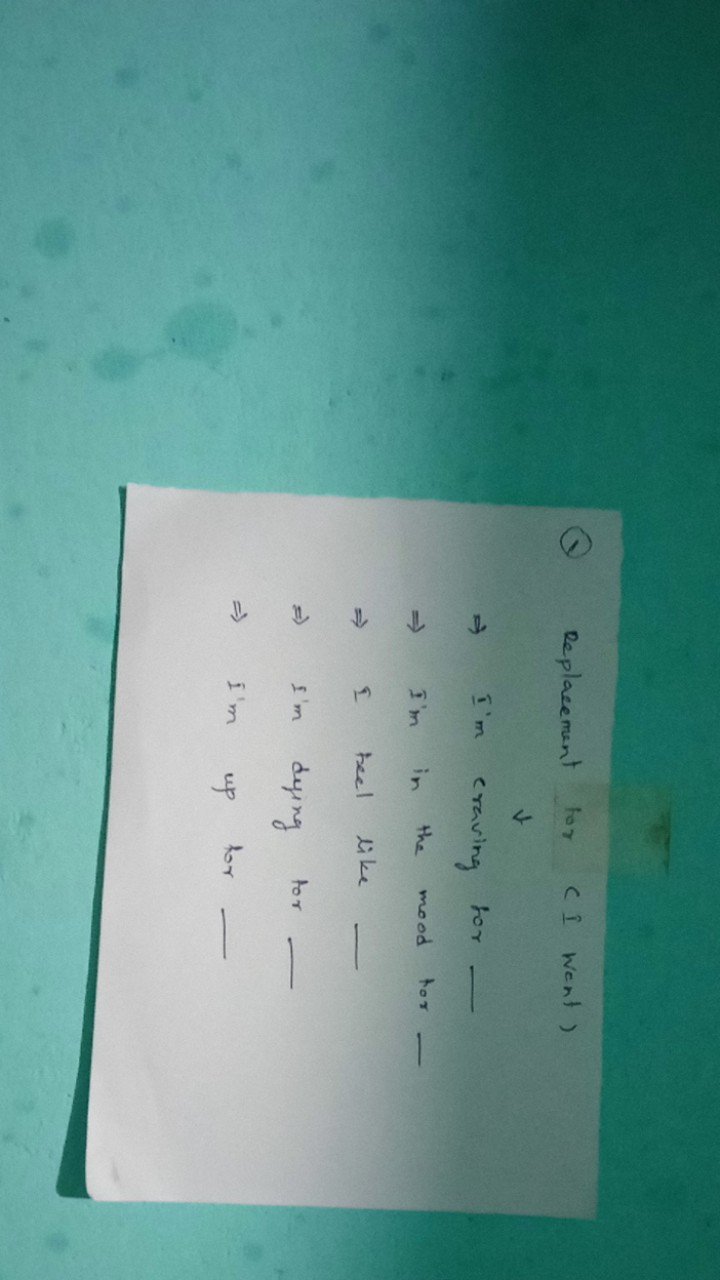 ① Replacement for (I want)
↓
⇒ I'm craving for __
⇒ I'm in the mood for __
⇒ I feel like __
⇒ I'm dying for __
⇒ I'm up for __